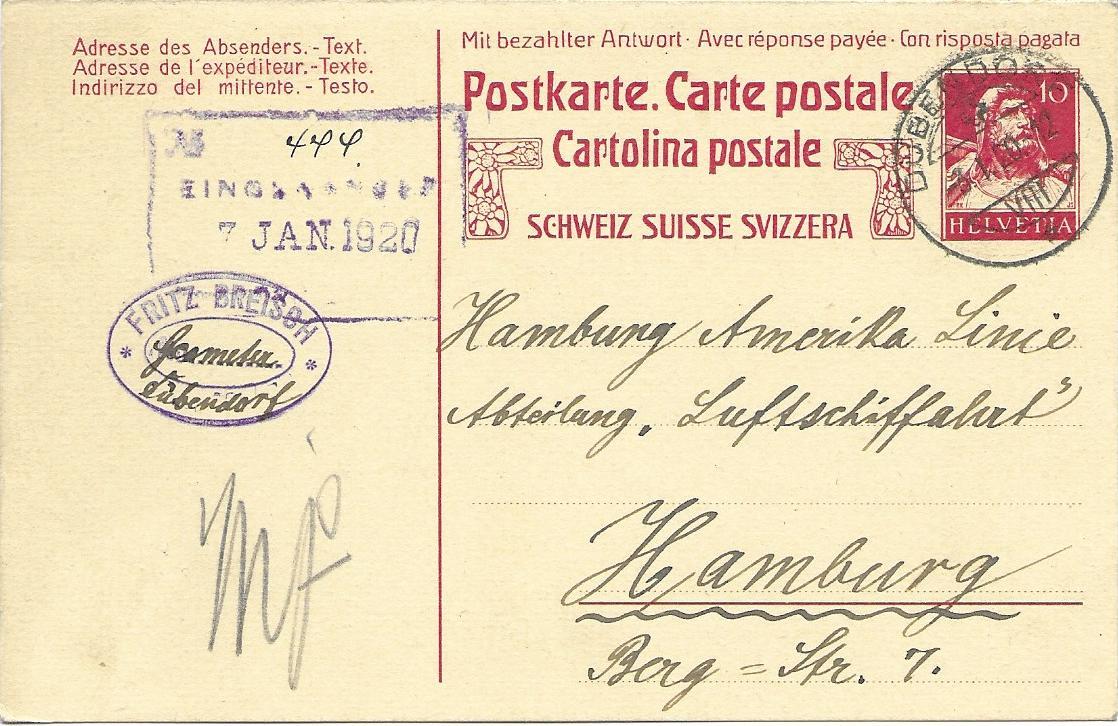 Adresse des Absenders.-Text.
Adresse de l'expéditeur.-Texte.
Indirizzo del mittente.-Testo.
Mit bezahlter Antwort · Avec réponse payée · Con risposta pagata
Postkarte. Carte postale
Cartolina postale
SCHWEIZ SUISSE SVIZZERA
10
HELVETIA
7 JAN. 1920
FRITZ BREISCH
Geometer
Dübendorf
Hamburg Amerika Linie
Abteilung „Luftschiffahrt"
Hamburg
Berg=Str. 7.